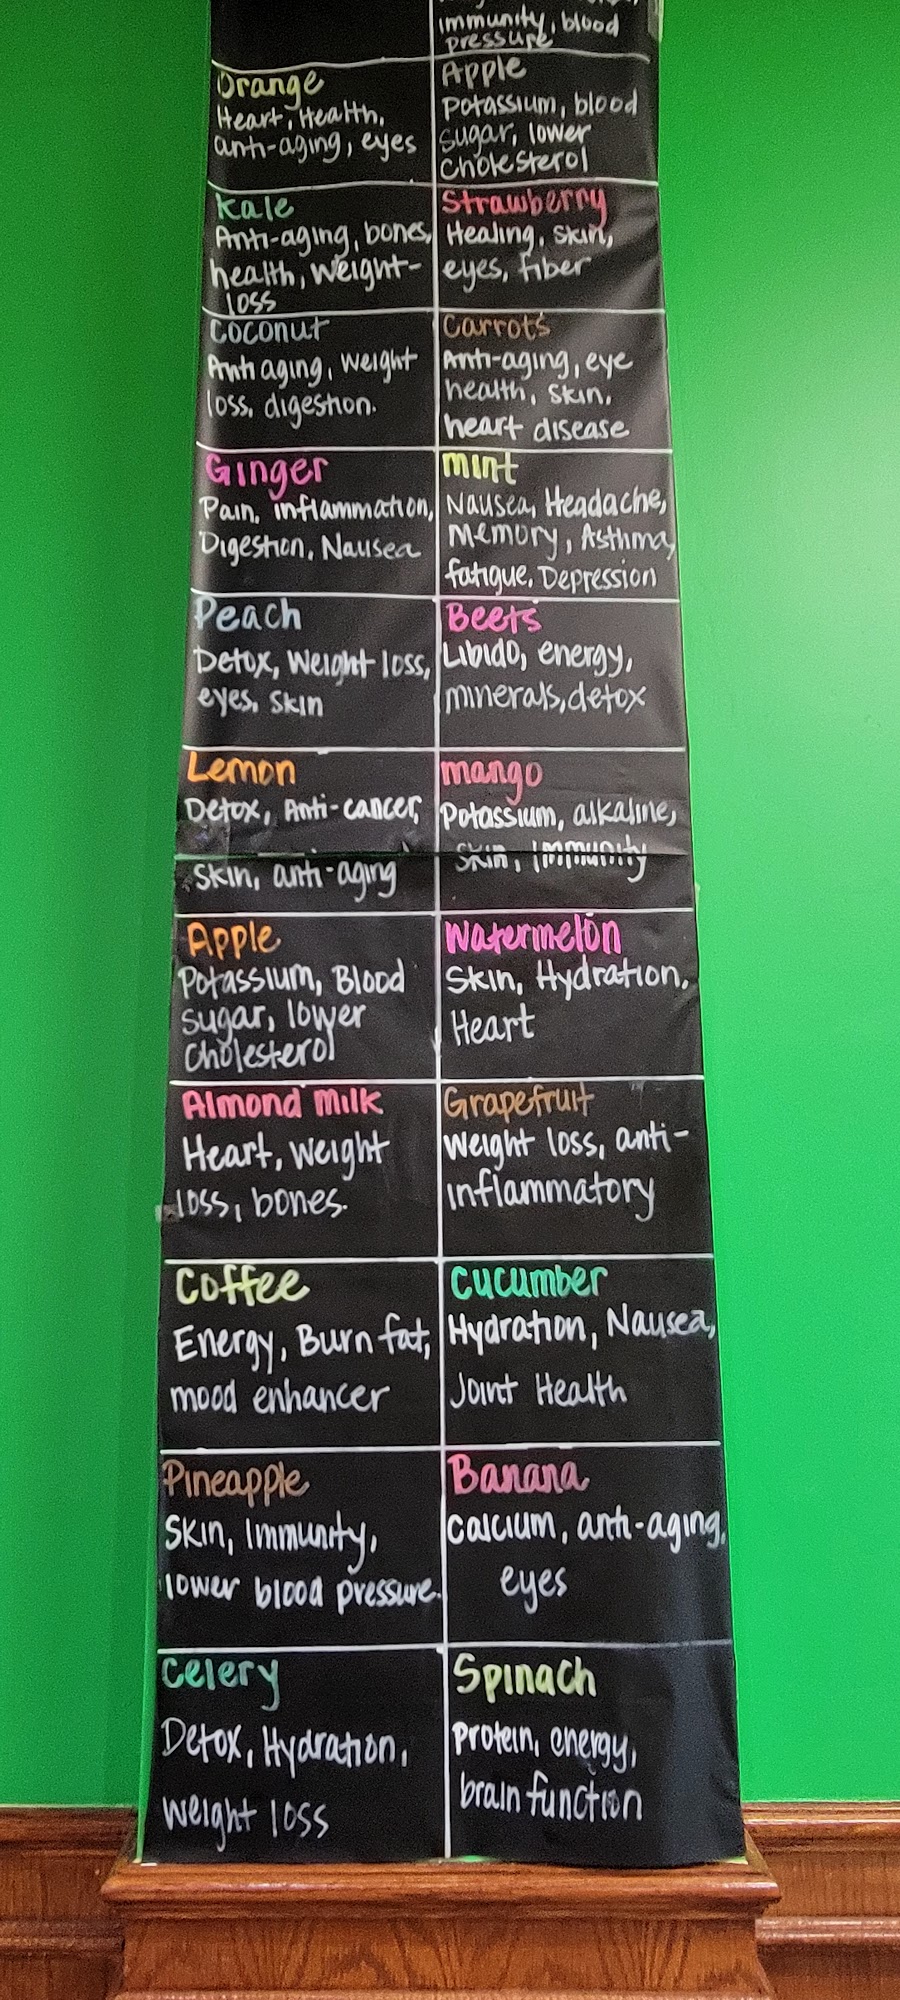 immunity, blood
pressure
Orange
Heart, Health,
anti-aging, eyes
Apple
Potassium, blood
sugar, lower
cholesterol
Kale
Anti-aging, bones,
health, weight-
loss
Strawberry
Healing, skin,
eyes, fiber
Coconut
Anti aging, weight
loss, digestion.
Carrots
Anti-aging, eye
health, skin,
heart disease
Ginger
Pain, inflammation,
Digestion, Nausea
mint
Nausea, Headache,
Memory, Asthma,
fatigue, Depression
Peach
Detox, Weight loss,
eyes, skin
Beets
Libido, energy,
minerals, detox
Lemon
Detox, Anti-cancer,
skin, anti-aging
mango
Potassium, alkaline,
skin, immunity
Apple
Potassium, Blood
sugar, lower
cholesterol
Watermelon
Skin, Hydration,
Heart
Almond milk
Heart, weight
loss, bones.
Grapefruit
weight loss, anti-
inflammatory
Coffee
Energy, Burn fat,
mood enhancer
Cucumber
Hydration, Nausea,
Joint Health
Pineapple
Skin, Immunity,
lower blood pressure.
Banana
calcium, anti-aging,
eyes
Celery
Detox, Hydration,
weight loss
Spinach
protein, energy,
brain function